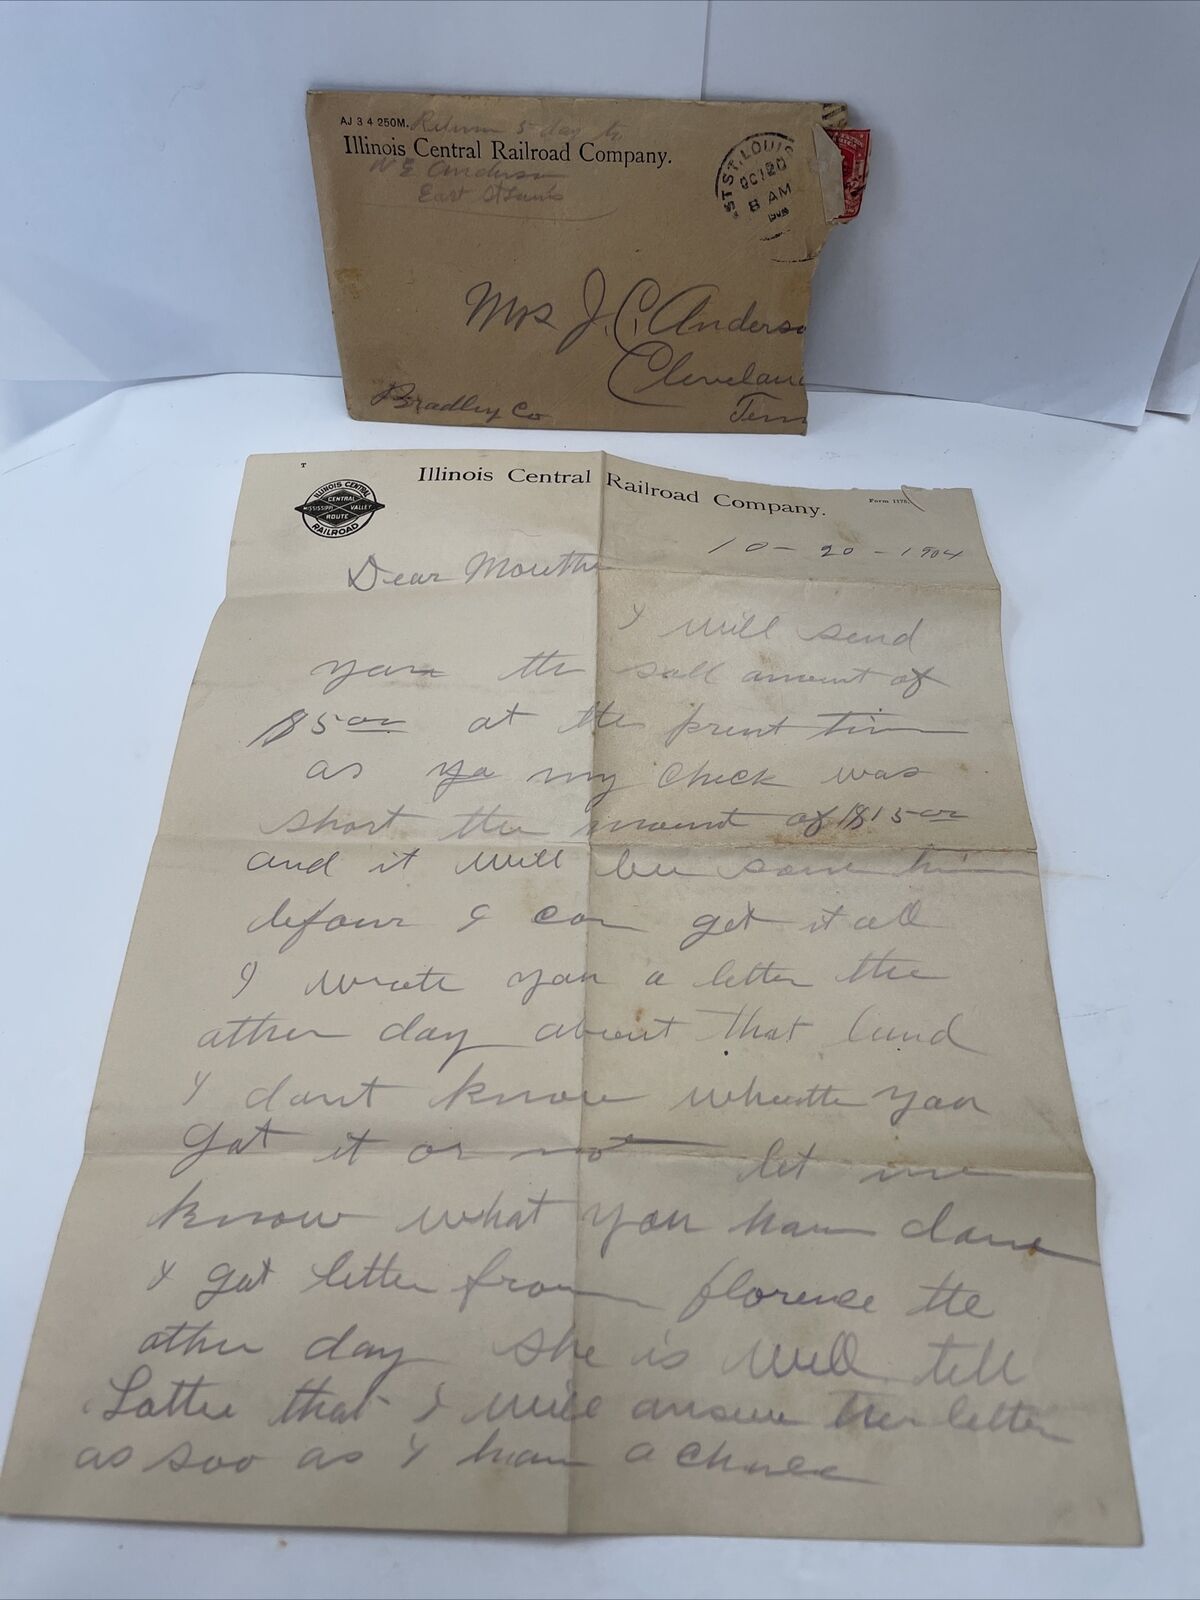 AJ 3 4 250M. Return 5 day to
Illinois Central Railroad Company.
W E Anderson
East St Louis
ST ST. LOUIS
OCT 20
8 AM
Mrs J. C. Anderso
Clevelan
Tenn
Bradley Co
T
Illinois Central Railroad Company.
Form 1175.
ILLINOIS CENTRAL
CENTRAL
MISSISSIPPI VALLEY
ROUTE
RAILROAD
10 - 20 - 1904
Dear Mouther
I will send
you the sall amount of
$5 00 at the presnt time
as ya my check was
short the amount of $15 00
and it will be some time
befour I can get it all
I wrote you a letter the
other day about that land
I dont know wheather you
got it or not let me
know what you have done
I got letter from florence the
other day she is well tell
Lottie that I will answer her letter
as soo as I have a chance